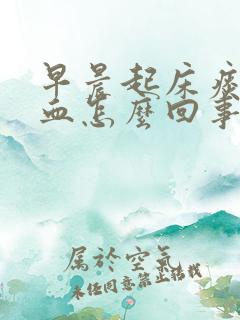 早晨起床痰
血怎麼回事
属於空氣
未经同意禁止转载